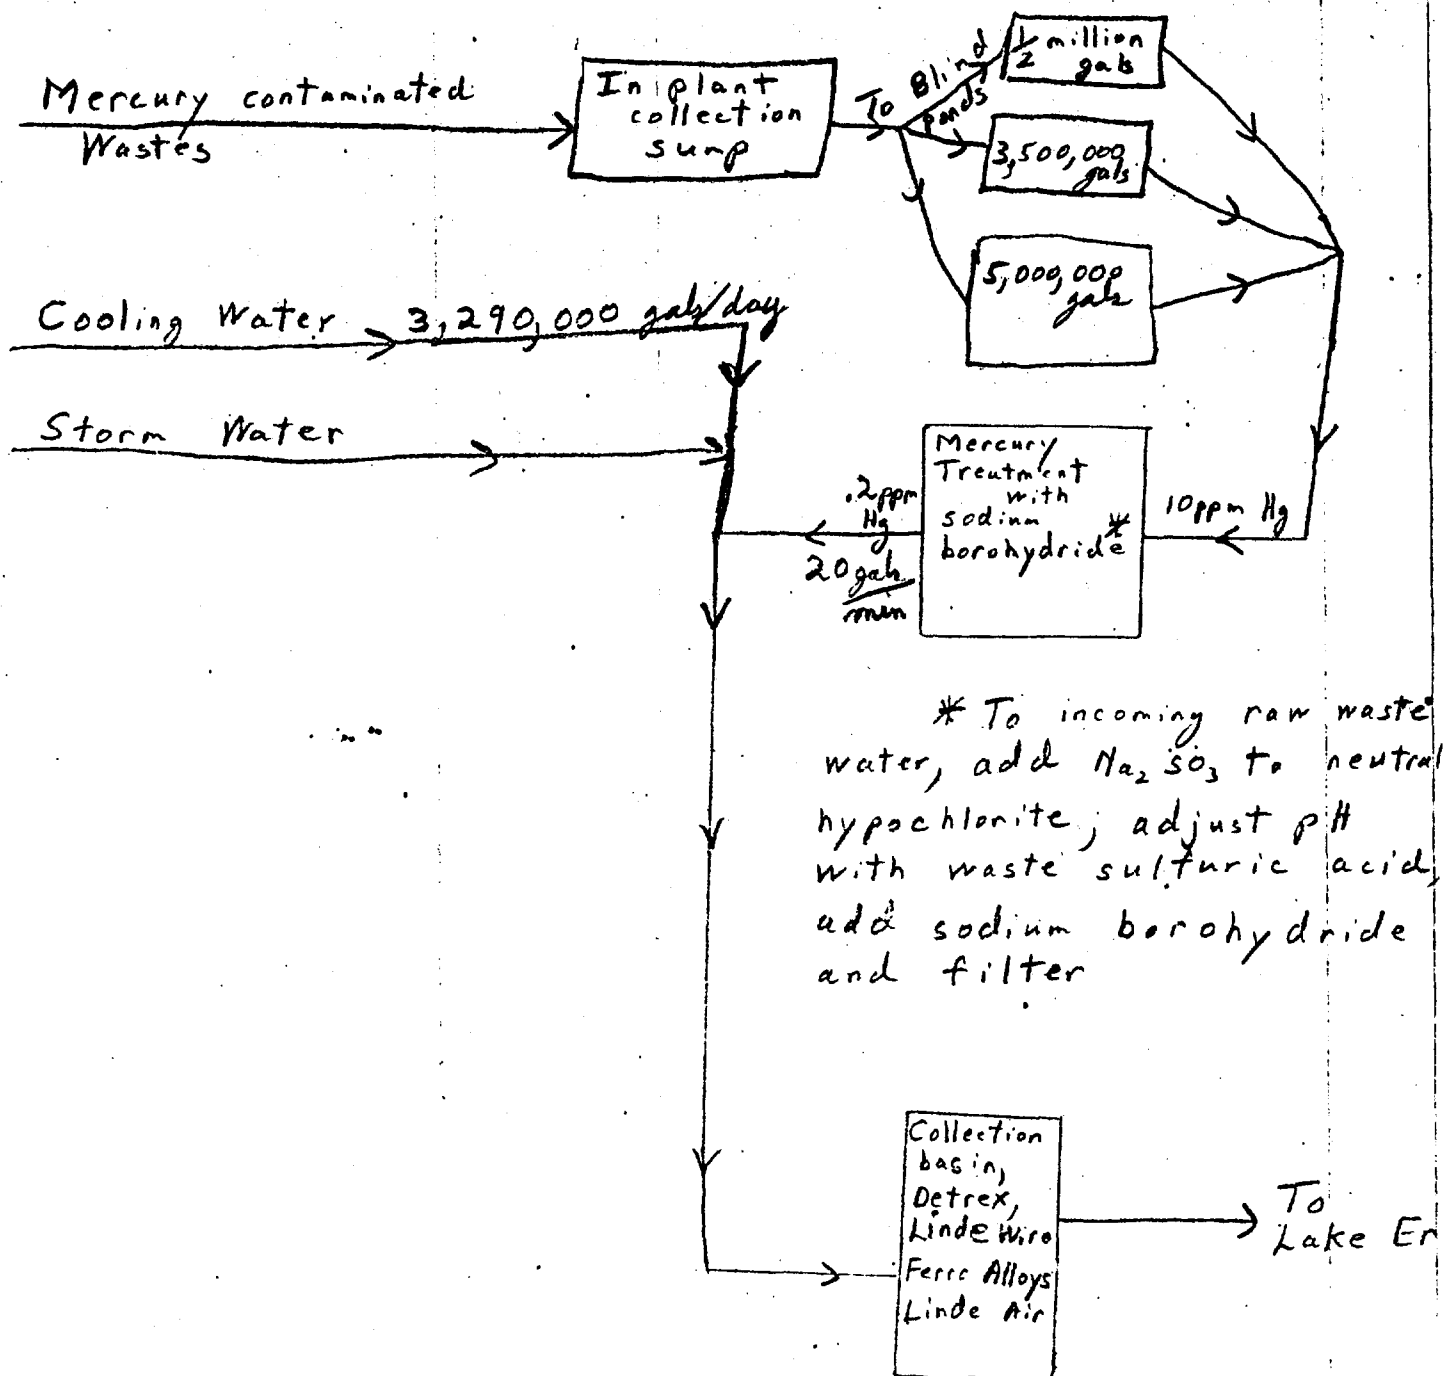 Mercury contaminated
Wastes
In plant
collection
sump
To Blind
ponds
1/2 million
gals
3,500,000
gals
5,000,000
gals
Cooling Water 3,290,000 gals/day
Storm Water
Mercury
Treatment
with
sodium
borohydride*
10ppm Hg
.2ppm
Hg
20 gals
min
* To incoming raw waste
water, add Na2SO3 to neutral
hypochlorite; adjust pH
with waste sulfuric acid,
add sodium borohydride
and filter
Collection
basin,
Detrex,
Linde Wire
Ferro Alloys
Linde Air
To
Lake Er